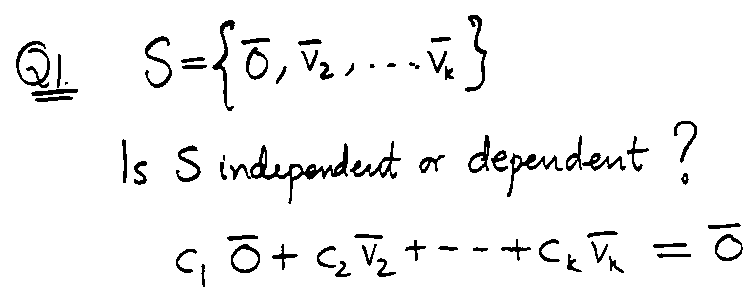 Q1. S={0̅, v̅₂, ... v̅ₖ}
Is S independent or dependent ?
c₁ 0̅ + c₂ v̅₂ + --- + cₖ v̅ₖ = 0̅